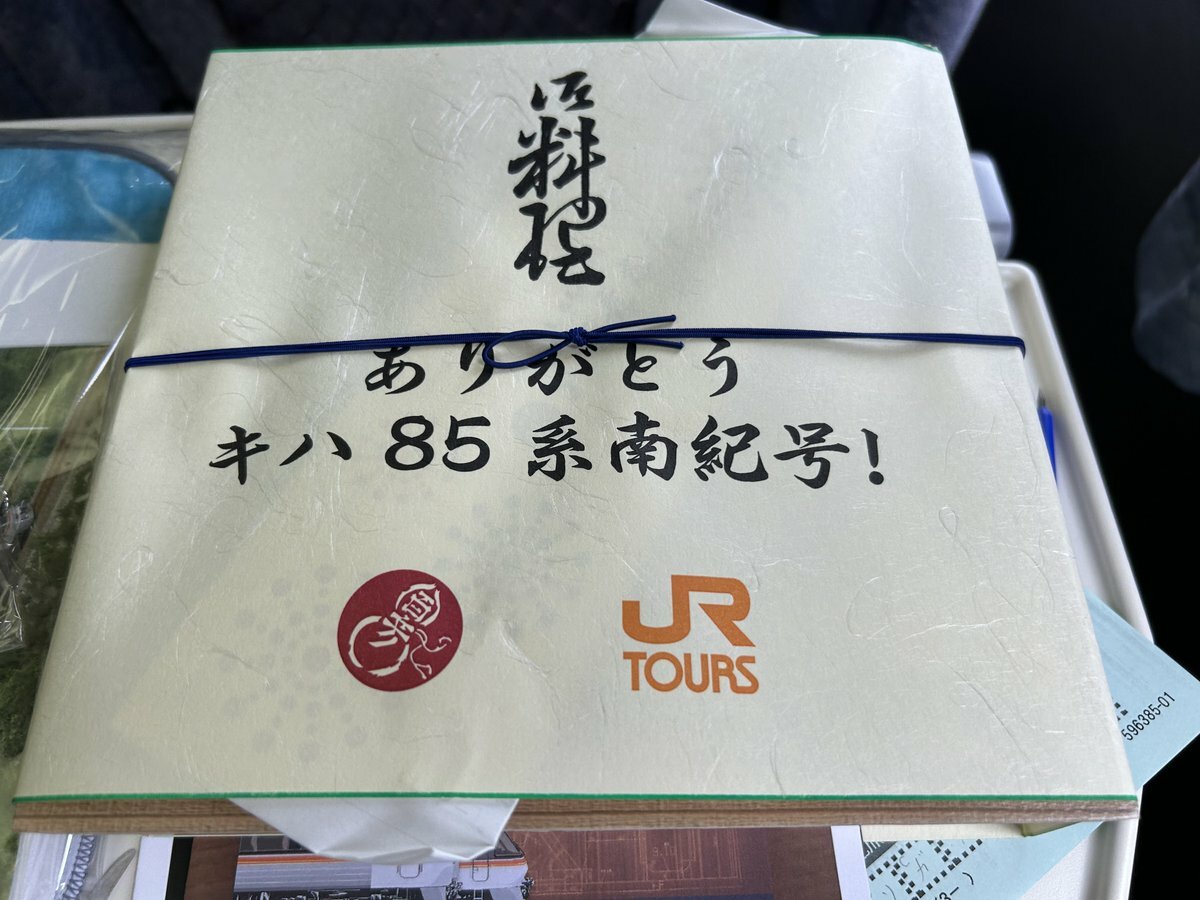 御料理
ありがとう
キハ85系南紀号!
JR
TOURS
596385-01